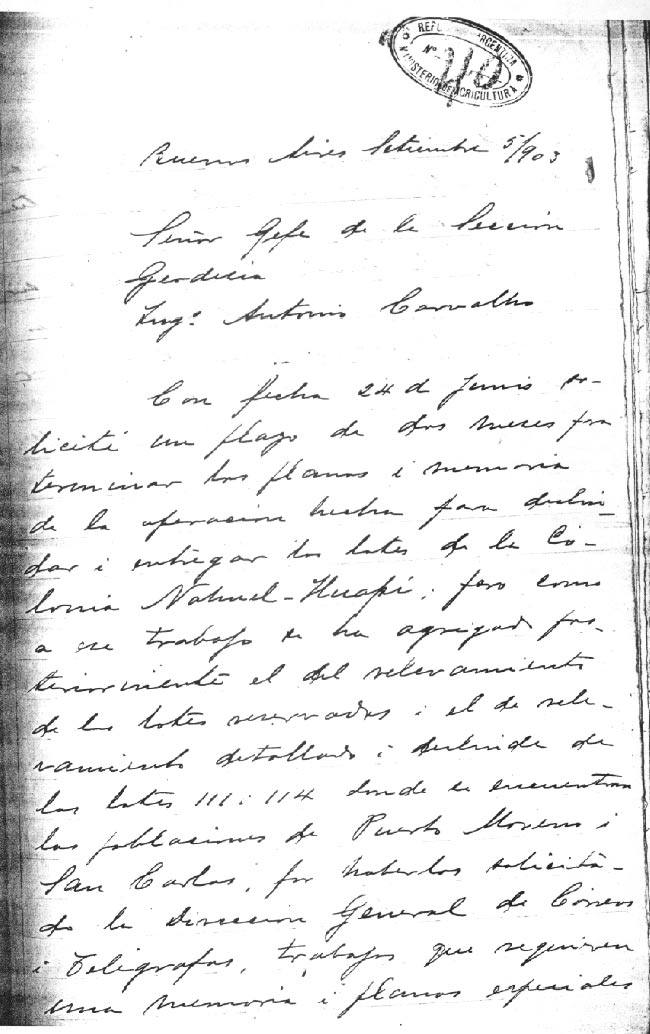 REPUBLICA ARGENTINA
Nº
MINISTERIO DE AGRICULTURA
Buenos Aires Setiembre 5/903
Señor Gefe de la Sección
Geodesia
Ingº Antonio Carvalho
Con fecha 24 de Junio so-
licité un plazo de dos meses para
terminar los planos i memoria
de la operacion hecha para deslin-
dar i entregar los lotes de la Co-
lonia Nahuel-Huapí; pero como
a ese trabajo se ha agregado pos-
teriormente el del relevamiento
de los lotes reservados i el de rele-
vamiento detallado i deslinde de
los lotes 111 i 114 donde se encuentran
las poblaciones de Puerto Moreno i
San Carlos, por haberlos solicita-
do la Direccion General de Correos
i Telégrafos, trabajos que requieren
una memoria i planos especiales